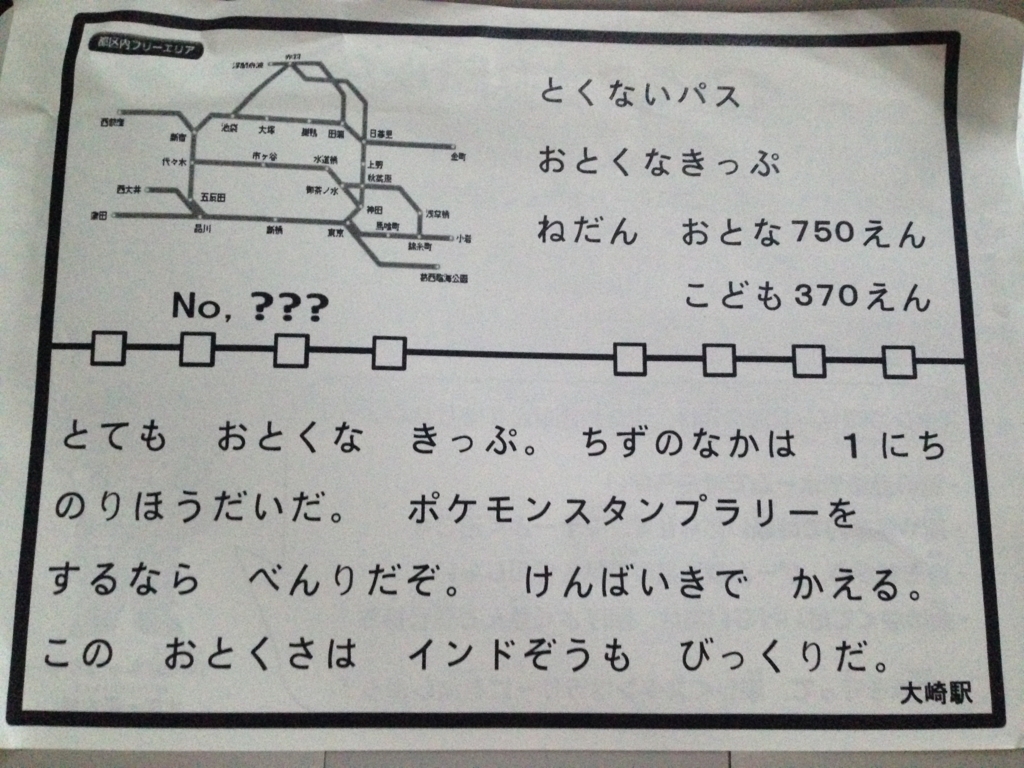 都区内フリーエリア
赤羽
西荻窪
新宿
池袋
大塚
巣鴨
田端
日暮里
金町
代々木
市ヶ谷
水道橋
上野
秋葉原
御茶ノ水
西大井
五反田
神田
浅草橋
蒲田
品川
新橋
東京
馬喰町
錦糸町
小岩
葛西臨海公園
とくないパス
おとくなきっぷ
ねだん　おとな750えん
こども370えん
No, ???
とても　おとくな　きっぷ。　ちずのなかは　1にち
のりほうだいだ。　ポケモンスタンプラリーを
するなら　べんりだぞ。　けんばいきで　かえる。
この　おとくさは　インドぞうも　びっくりだ。
大崎駅